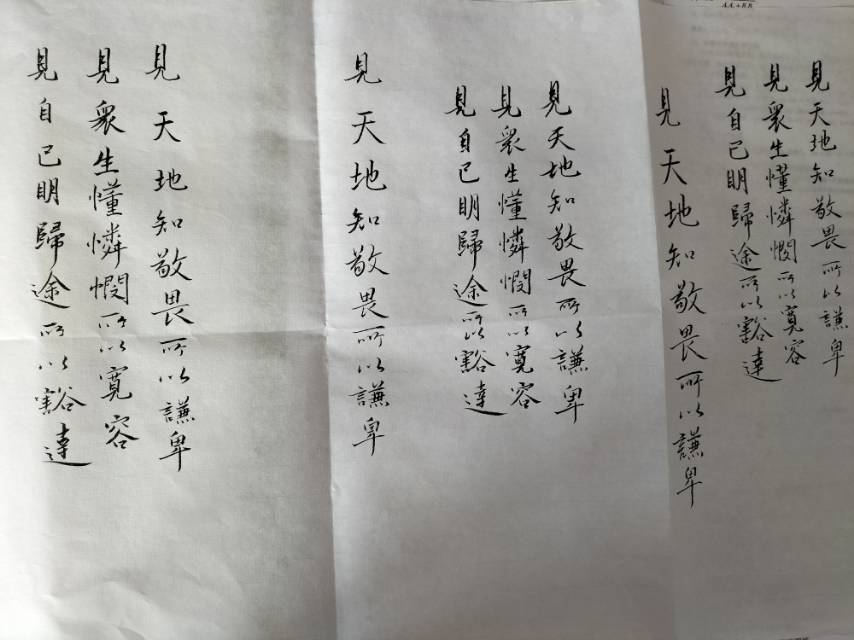 見天地知敬畏所以謙卑
見衆生懂憐憫所以寬容
見自己明歸途所以豁達
見天地知敬畏所以謙卑
見天地知敬畏所以謙卑
見衆生懂憐憫所以寬容
見自己明歸途所以豁達
見天地知敬畏所以謙卑
見天地知敬畏所以謙卑
見衆生懂憐憫所以寬容
見自己明歸途所以豁達